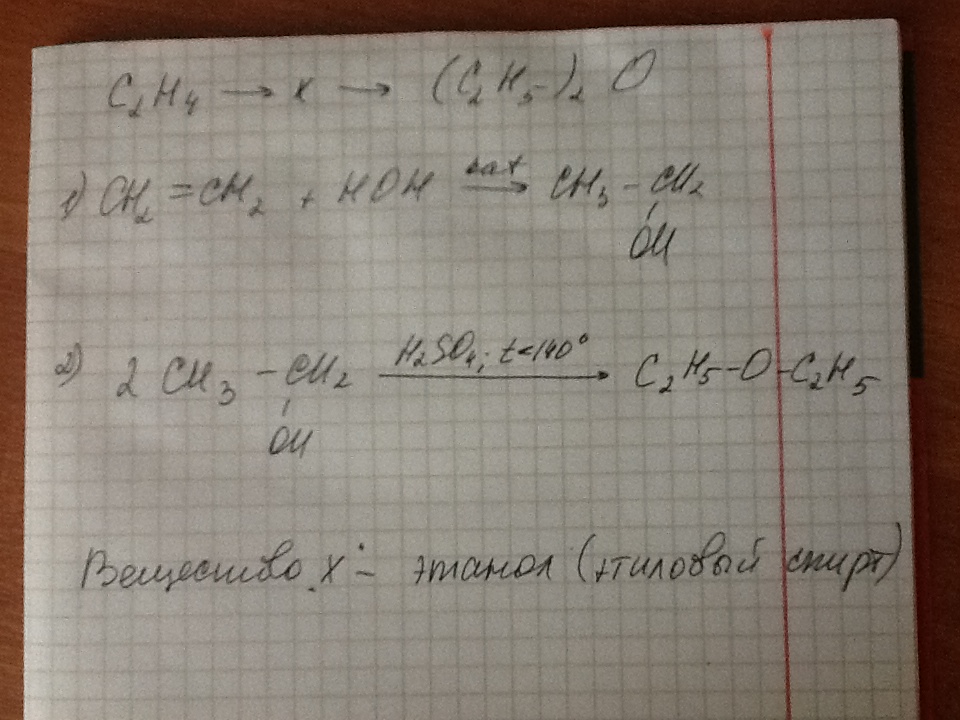 C₂H₄ → x → (C₂H₅)₂O
1) CH₂=CH₂ + HOH →(кат) CH₃-CH₂
OH
2) 2CH₃-CH₂ →(H₂SO₄; t<140°) C₂H₅-O-C₂H₅
OH
Вещество x - этанол (этиловый спирт)